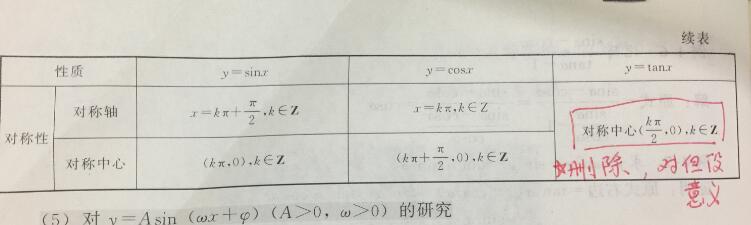 续表
性质 y=sinx y=cosx y=tanx
对称性 对称轴 x=kπ+π/2,k∈Z x=kπ,k∈Z
对称中心(kπ/2,0),k∈Z
对称中心 (kπ,0),k∈Z (kπ+π/2,0),k∈Z
删除、对但没
意义
(5) 对 y=Asin (ωx+φ) (A>0, ω>0) 的研究